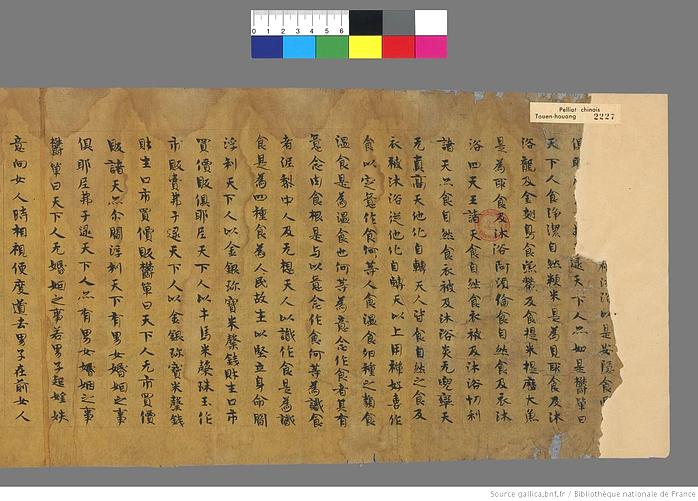 Pelliot chinois
Touen-houang 2227
沐浴以是安隱食
俱耶 逮天下人亦如是欝單曰
天下人食淨潔自然粳米是為見取食及沐
浴龍及金翅鳥食黿鼈及食提米提歷大魚
是為取食及沐浴阿須倫食自然食及衣沐
浴四天王諸天食自然食衣被及沐浴忉利
諸天亦食自然食衣被及沐浴炎天兜率天
无貢高天他化自轉天人皆食自然之食及
衣被沐浴從他化自轉天以上用禪好喜作
食以定意作食何等人食溫食細種之類食
溫食是為溫食也何等為意念作食者其有
意念因食根是与以意念作食何等為識食
者泥犁中人及无想天人以識作食是為識
食是為四種食為人民故生以堅立身命閻
浮利天下人以金銀珎寶米糓錢財生口市
買價販俱耶尼天下人以牛馬米糓珠玉作
市販賣弗于逮天下人以金銀珎寶米糓錢
財生口市買價販欝單曰天下人无市買價
販諸天亦尒閻浮利天下有男女婚姻之事
俱耶尼弗于逮天下人亦有男女婚姻之事
欝單曰天下人无婚姻之事若男子起婬妷
意向女人時相視便度道去男子在前女人
Source gallica.bnf.fr / Bibliothèque nationale de France